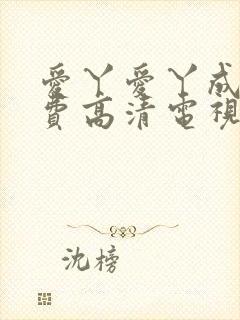 愛丫愛丫成
費高清電視
沈榜